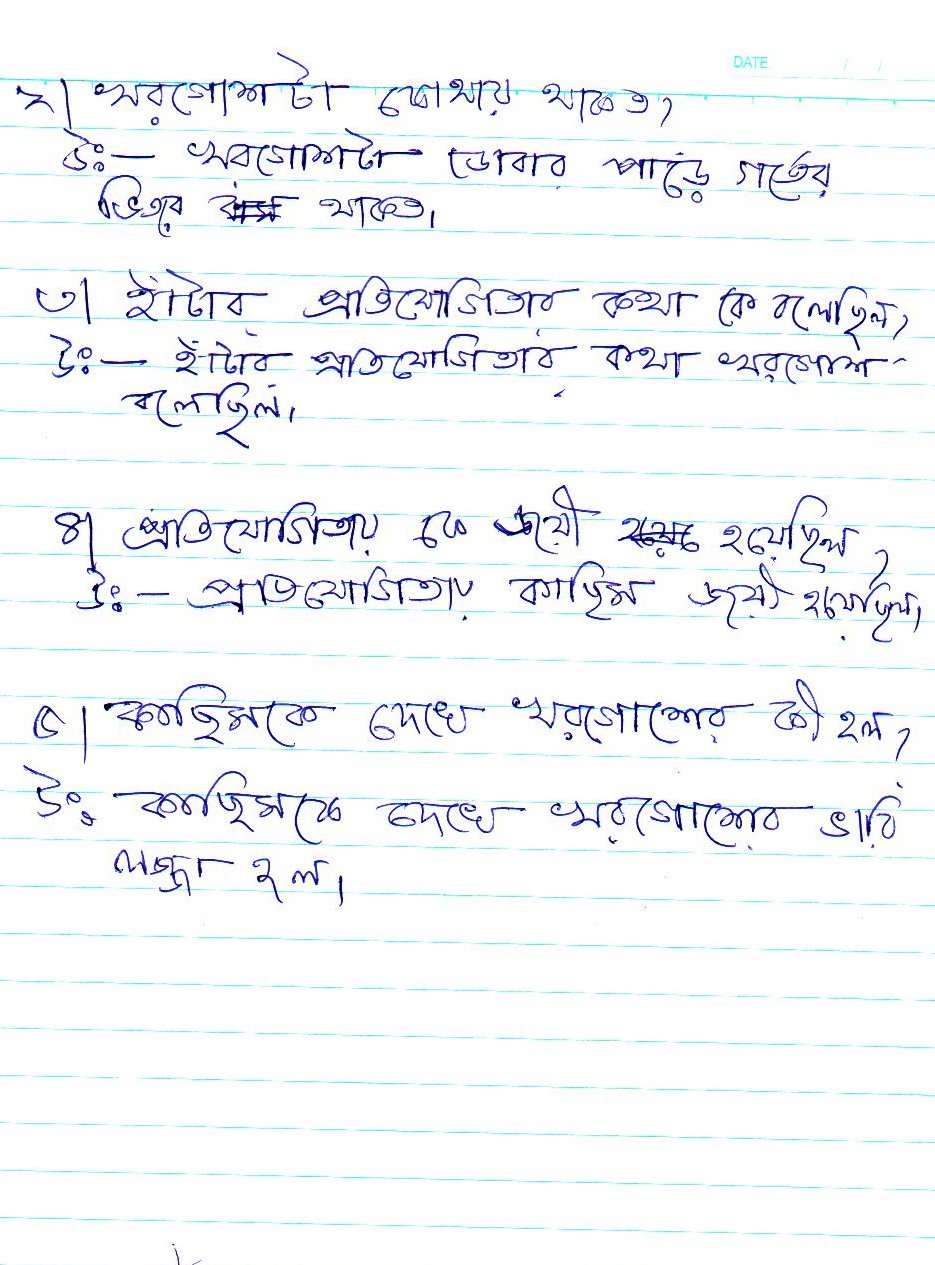 DATE / /
২। খরগোশটা কোথায় থাকত,
উঃ— খরগোশটা ডোবার পাড়ে গর্তের
ভিতরে থাকত।
৩। হাঁটার প্রতিযোগিতার কথা কে বলেছিল,
উঃ— হাঁটার প্রতিযোগিতার কথা খরগোশ
বলেছিল।
৪। প্রতিযোগিতায় কে জয়ী হয়েছিল,
উঃ— প্রতিযোগিতায় কাছিম জয়ী হয়েছিল।
৫। কাছিমকে দেখে খরগোশের কী হল,
উঃ কাছিমকে দেখে খরগোশের ভারি
লজ্জা হল।